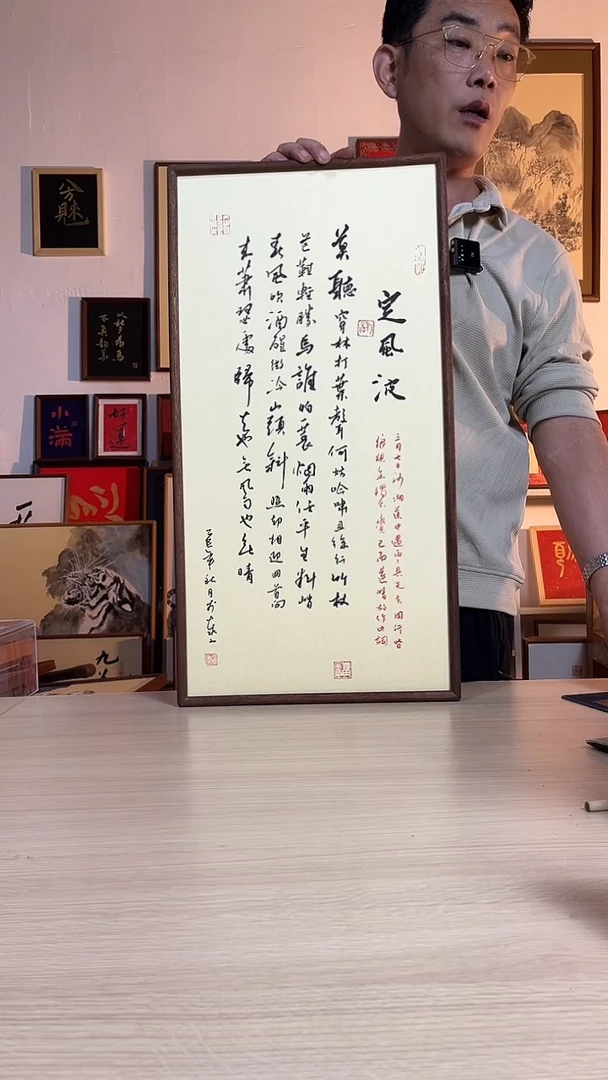 定風波
三月七日沙湖道中遇雨雨具先去同行皆
狼狽余獨不覺已而遂晴故作此詞
莫聽穿林打葉聲何妨吟嘯且徐行竹杖
芒鞋輕勝馬誰怕蓑烟雨任平生料峭
春風吹酒醒微冷山頭斜照却相迎回首向
来蕭瑟處歸去也無風雨也無晴
小滿
好運